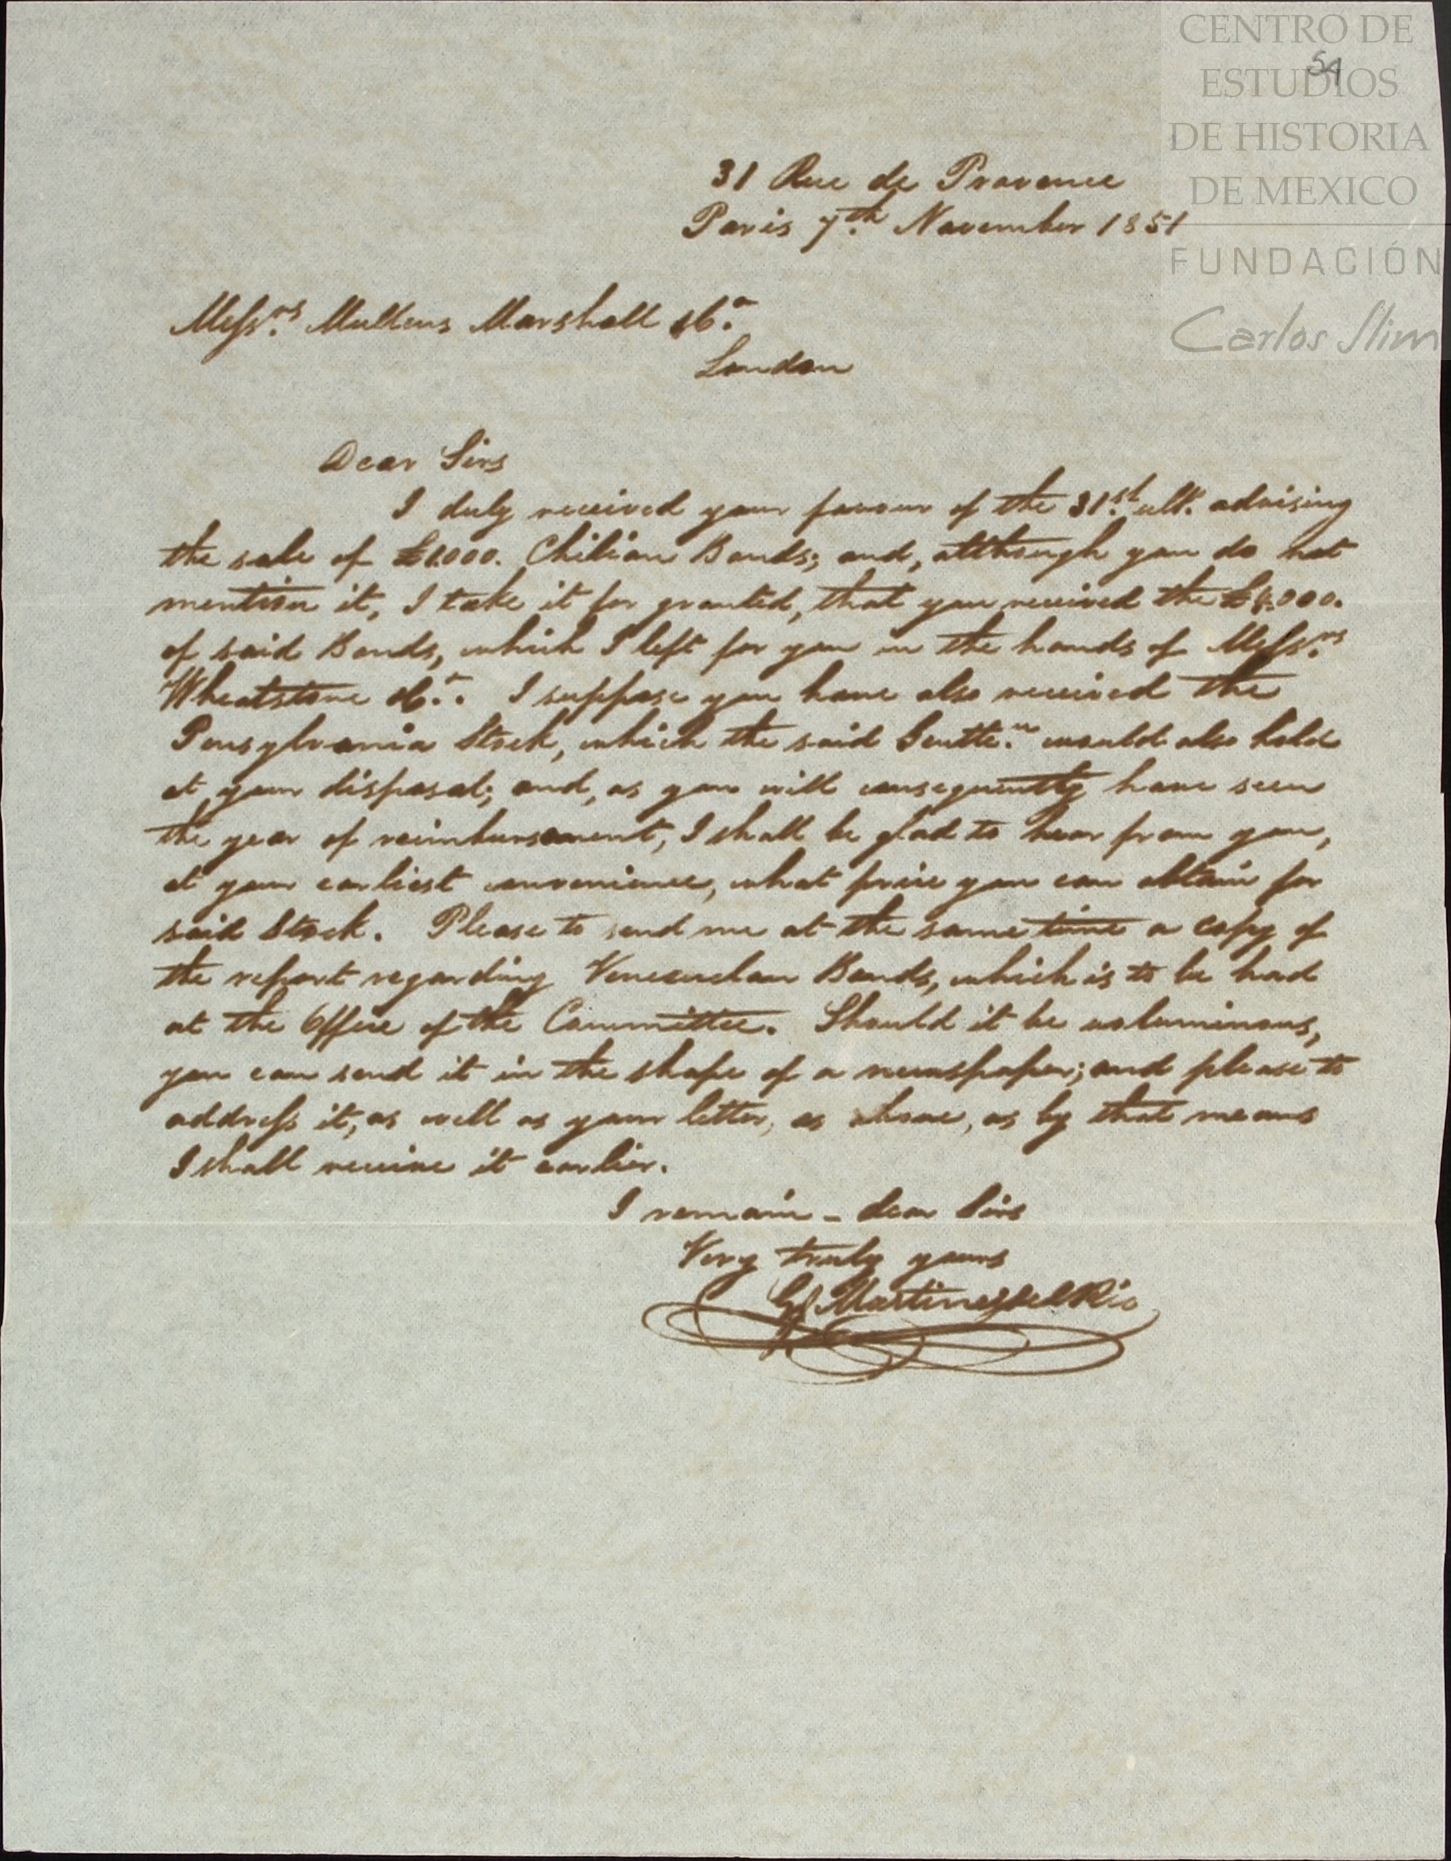 CENTRO DE
ESTUDIOS
DE HISTORIA
DE MEXICO
FUNDACIÓN
Carlos Slim
54
31 Rue de Provence
Paris 7th November 1851
Messrs Mullens Marshall & Co
London
Dear Sirs
I duly received your favour of the 31st ult. advising
the sale of £1000. Chilian Bonds; and, although you do not
mention it, I take it for granted, that you received the £8.000.
of said Bonds, which I left for you in the hands of Messrs
Wheatstone & Co. I suppose you have also received the
Pensylvania Stock, which the said Gentlen would also hold
at your disposal; and, as you will consequently have seen
the year of reimbursement, I shall be glad to hear from you,
at your earliest convenience, what price you can obtain for
said Stock. Please to send me at the same time a copy of
the report regarding Venezuelan Bonds, which is to be had
at the Office of the Committee. Should it be voluminous,
you can send it in the shape of a newspaper; and please to
address it, as well as your letter, as above, as by that means
I shall receive it earlier.
I remain - dear Sirs
Very truly yours
G Martinez del Rio